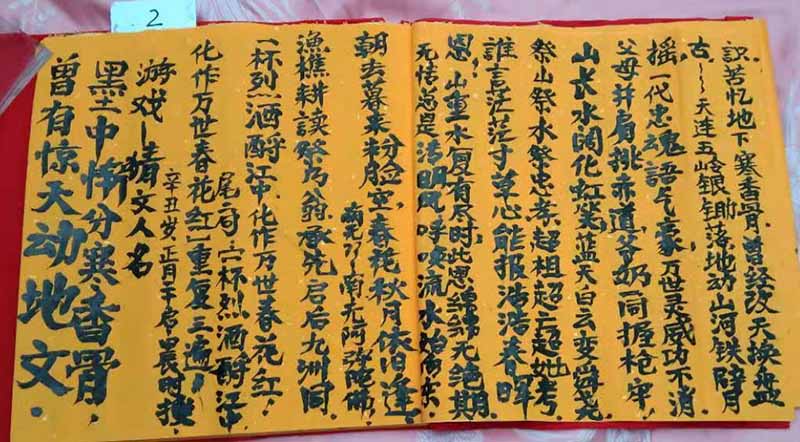 2
识苦忆地下寒香骨曾经改天换盘
古~~天连五岭银锄落地动山河铁臂
摇,一代忠魂语气豪万世灵威功不消
父母并肩挑赤道爷奶同握枪
山长水阔化虹紫蓝天白云变舜尧
祭山祭水祭忠孝超祖超 超她考
谁言茫茫寸草心能报浩浩春晖
恩,山重水复有尽时此恩绵绵无绝期
无情总是清明风呼唤流水
朝去暮来粉脸空,春花秋月依旧逢
南无阿弥陀佛
渔樵耕读祭乃翁承先启后九州同
一杯烈酒酹江中化作万世春花红!
尾句:一杯烈酒酹江中
化作万世春花红」重复三遍!
辛丑岁正月于启晨时撰
游戏~猜文人名
黑土中 分寒香骨
曾有惊天动地文.